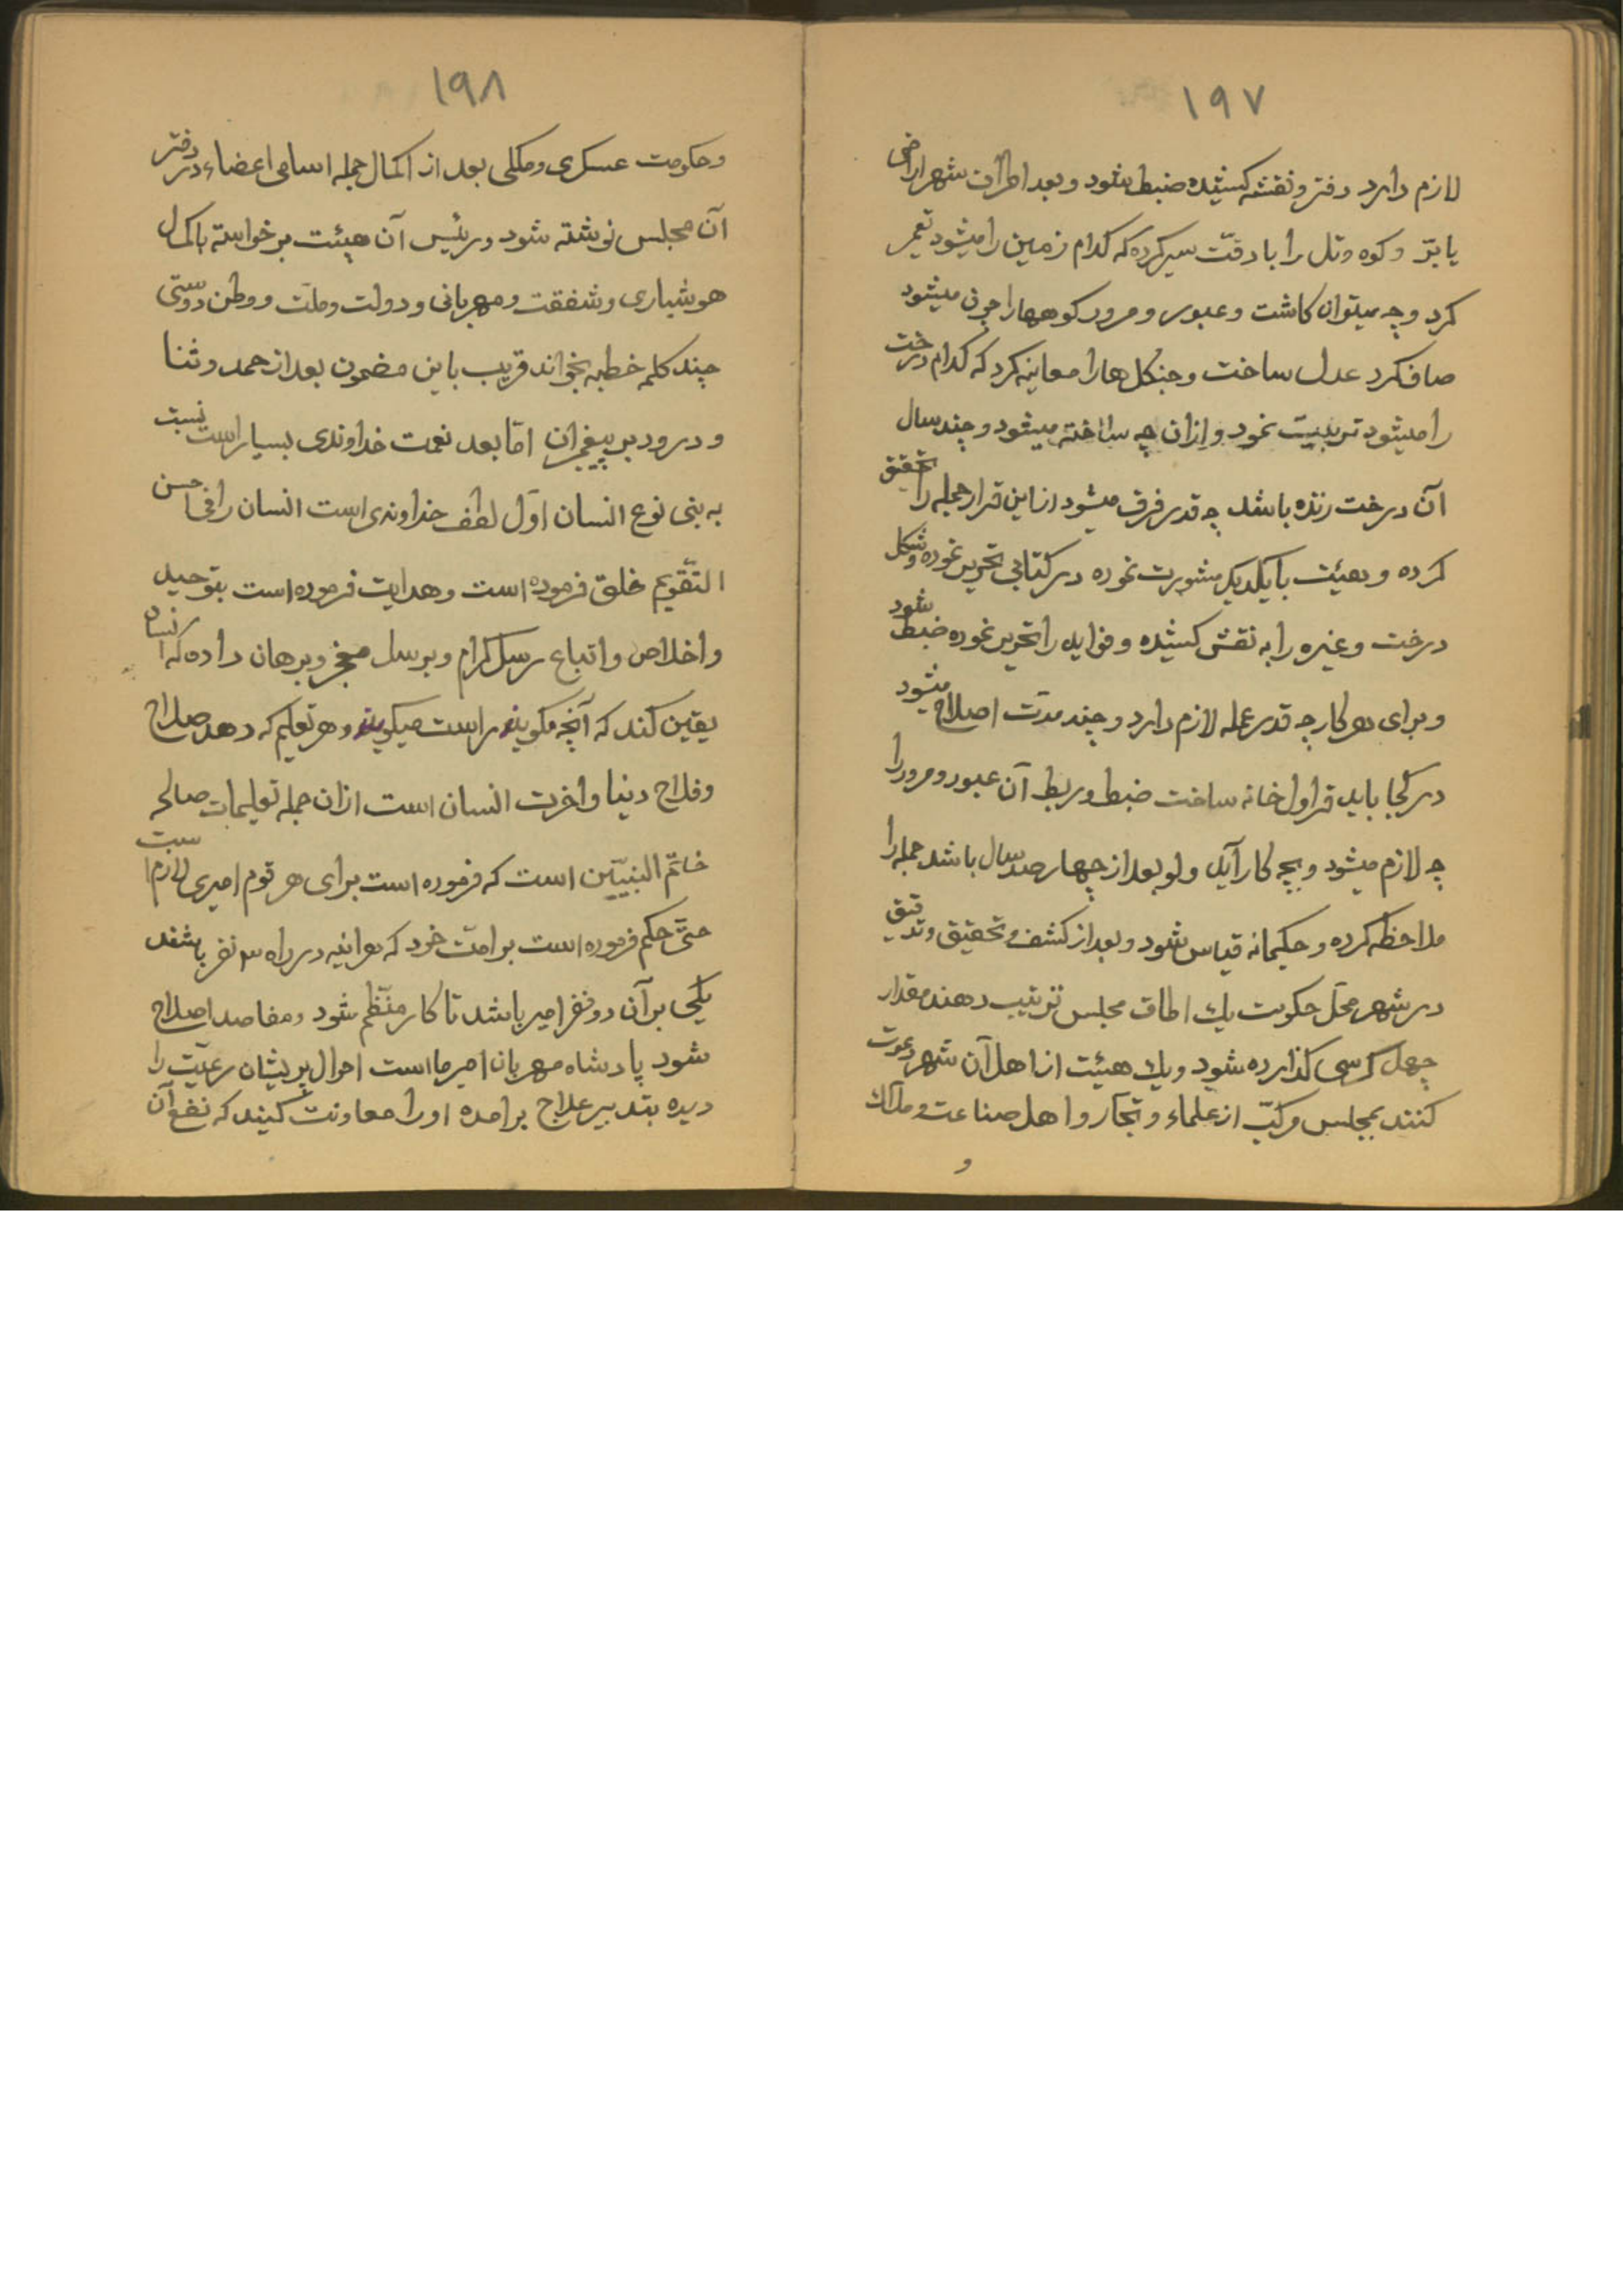 ۱۹۷
لازم دارد دفتر و نقشه کشیده ضبط شود و بعد اطراف شهر اراضی
یا برّ و کوه و تل را با دقّت سیر کرده که کدام زمین را میشود تعمیر
کرد و چه میتوان کاشت و عبور و مرور کوهها را چون میشود
صاف کرد عدل ساخت و جنکل ها را معاینه کرد که کدام درخت
را میشود تربیت نمود و از ان چه ساخته میشود و چند سال
آن درخت زنده باشد چه قدر فرق میشود از این قرار جمله را تحقیق
کرده و بهیئت با یکدیکر مشورت نموده در کتابی تحریر نموده و شکل
درخت و غیره را به نقش کشیده و فواید را تحریر نموده ضبط شود
و برای هر کار چه قدر عمله لازم دارد و چند مدّت اصلاح میشود
در کجا باید قراول خانه ساخت ضبط و ربط آن عبور و مرور را
چه لازم میشود و بچه کار آید ولو بعد از چهار صد سال باشد جمله را
ملاحظه کرده و حکیمانه قیاس شود و بعد از کشف و تحقیق و تدقیق
در شهر محلّ حکومت یك اطاق مجلس ترتیب دهند مقدار
چهل کرسی کذارده شود و یك هیئت از اهل آن شهر دعوت
کنند بمجلس مرکّب از علماء و تجّار و اهل صناعت و ملاك
و
۱۹۸
و حکومت عسکری و ملکی بعد از اکمال جمله اسامی اعضاء در دفتر
آن مجلس نوشته شود و رئیس آن هیئت برخواسته باکمال
هوشیاری و شفقت و مهربانی و دولت و ملّت و وطن دوستی
چند کلمه خطبه بخواند قریب باین مضمون بعد از حمد و ثنا
و درود بر پیغمبران امّا بعد نعمت خداوندی بسیار است نسبت
به بنی نوع انسان اوّل لطف خداوندی است انسان را فی احسن
التّقویم خلق فرموده است و هدایت فرموده است بتوحید
و اخلاص و اتباع رسل کرام و برسل معجز و برهان داده که انسان
یقین کند که آنچه مکویند راست میکویند و هر تعلیم که دهد صلاح
و فلاح دنیا و اخرت انسان است از ان جمله تعلیمات صالحه
خاتم النبیّین است که فرموده است برای هر قوم امیری لازم است
حتّی حکم فرموده است بر امّت خود که هر اینه در راه سه نفر باشند
یکی بر آن دو نفر امیر باشد تا کار منتظم شود و مفاصد اصلاح
شود پادشاه مهربان امیر ما است احوال پریشان رعیّت را
دیده بتدبیر علاج برامده او را معاونت کنید که نفع آن